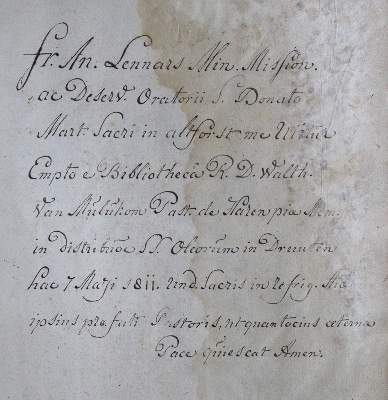 Fr. An. Lennars Min. Mission.
ac Deserv. Oratorii S. Donato
Mart. Sacri in altforst me
Empto e Bibliothecâ R. D. Walth.
Van Past. de Haren piæ Mem.
in distribuõe SS. Oleorum in Druuten
hac 7 Maji 1811. Und. Sacris in refrig.
ipsius præfati Pastoris, ut quantocius æterna
Pace quiescat Amen.